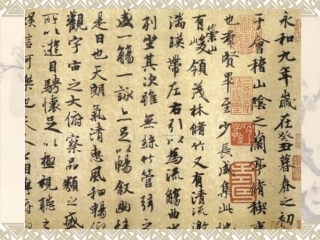 永和九年歲在癸丑暮春之初
于會稽山陰之蘭亭脩稧事
也羣賢畢至少長咸集此地
有崇山峻領茂林脩竹又有清流激
湍暎帶左右引以為流觴曲水
列坐其次雖無絲竹管弦之
盛一觴一詠亦足以暢敘幽情
是日也天朗氣清惠風和暢仰
觀宇宙之大俯察品類之盛
所以遊目騁懷足以極視聽之
娛信可樂也夫人之相